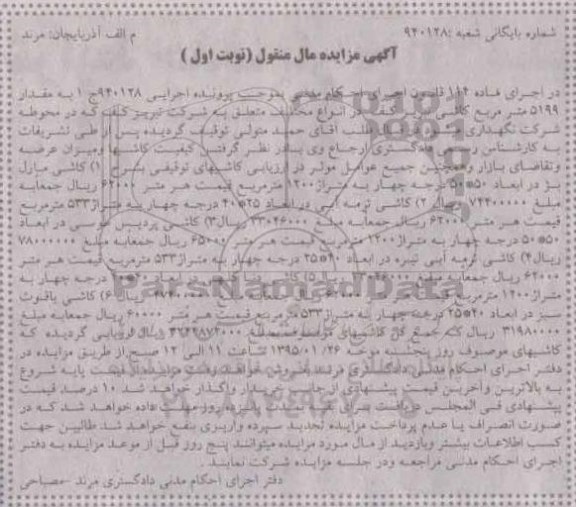 شماره بایگانی شعبه :۹۴۰۱۲۸ م الف آذربایجان: مرند
آگهی مزایده مال منقول (نوبت اول )
در اجرای ماده ۱۱۴ قانون اجرای احکام مدنی بموجب پرونده اجرایی ۹۴۰۱۲۸ج ۱ به مقدار
۵۱۹۹ متر مربع کاشی تبریز کف در انواع مختلف متعلق به شرکت تبریز کف که در محوطه
شرکت نگهداری طلب آقای حمد متولی توقیف گردیده پس از طی تشریفات
به کارشناس رسمی دادگستری ارجاع وی با در نظر گرفتن کیفیت کاشیها ومیزان عرضه
وتقاضای بازار وهمچنین جمیع عوامل موثر در ارزیابی کاشیهای توقیفی بشرح ۱) کاشی مارل
بژ در ابعاد ۵۰*۵۰ درجه چهار به متراژ ۱۲۰۰ مترمربع قیمت هر متر ۶۲۰۰۰ ریال جمعابه
مبلغ ۷۴۴۰۰۰۰۰ ریال ۲) کاشی ترمه آبی در ابعاد ۲۵*۴۰ درجه چهار به متراژ ۵۳۳ مترمربع
قیمت هر متر ۶۲۰۰۰ ریال جمعابه مبلغ ۳۳۰۴۶۰۰۰ ریال ۳) کاشی پردیس طوسی در ابعاد
۵۰*۵۰ درجه چهار به متراژ ۱۲۰۰ مترمربع قیمت هر متر ۶۵۰۰۰ ریال جمعابه مبلغ ۷۸۰۰۰۰۰۰
ریال ۴) کاشی ترمه آبی تیره در ابعاد ۴۰*۲۵ درجه چهار به متراژ ۵۳۳ مترمربع قیمت هر متر
۶۲۰۰۰ ریال جمعابه مبلغ ۳۳۰۴۶۰۰۰ ریال ۵) کاشی در ابعاد درجه چهار به
متراژ ۱۲۰۰ مترمربع قیمت هر متر ریال جمعابه مبلغ ریال ۶) کاشی یاقوت
سبز در ابعاد ۴۰*۲۵ درجه چهار به متراژ ۵۳۳ مترمربع قیمت هر متر ۶۰۰۰۰ ریال جمعابه مبلغ
۳۱۹۸۰۰۰۰ ریال که جمع کل کاشیهای موصوف بمبلغ ریال ارزیابی گردیده که
کاشیهای موصوف روز پنجشنبه مورخه ۱۳۹۵/۰۱/۲۶ ساعت ۱۱ الی ۱۲ صبح از طریق مزایده در
دفتر اجرای احکام مدنی دادگستری مرند بفروش خواهد رفت مزایده از قیمت پایه شروع
به بالاترین وآخرین قیمت پیشنهادی از جانب خریدار واگذار خواهد شد ۱۰ درصد قیمت
پیشنهادی فی المجلس دریافت برای بقیه قیمت پانزده روز مهلت داده خواهد شد که در
صورت انصراف یا عدم پرداخت مزایده تجدید سپرده واریزی بنفع خواهد شد طالبین جهت
کسب اطلاعات بیشتر وبازدید از مال مورد مزایده میتوانند پنج روز قبل از موعد مزایده به دفتر
اجرای احکام مدنی مراجعه ودر جلسه مزایده شرکت نمایند .
دفتر اجرای احکام مدنی دادگستری مرند -مصباحی
ParsNamadData